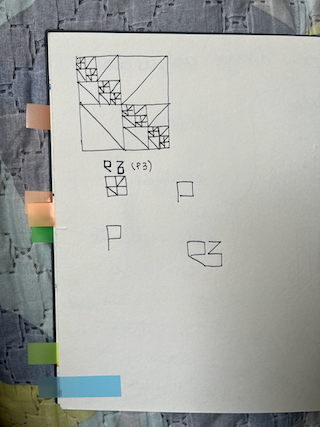 P3 (P3)
P
P
P3